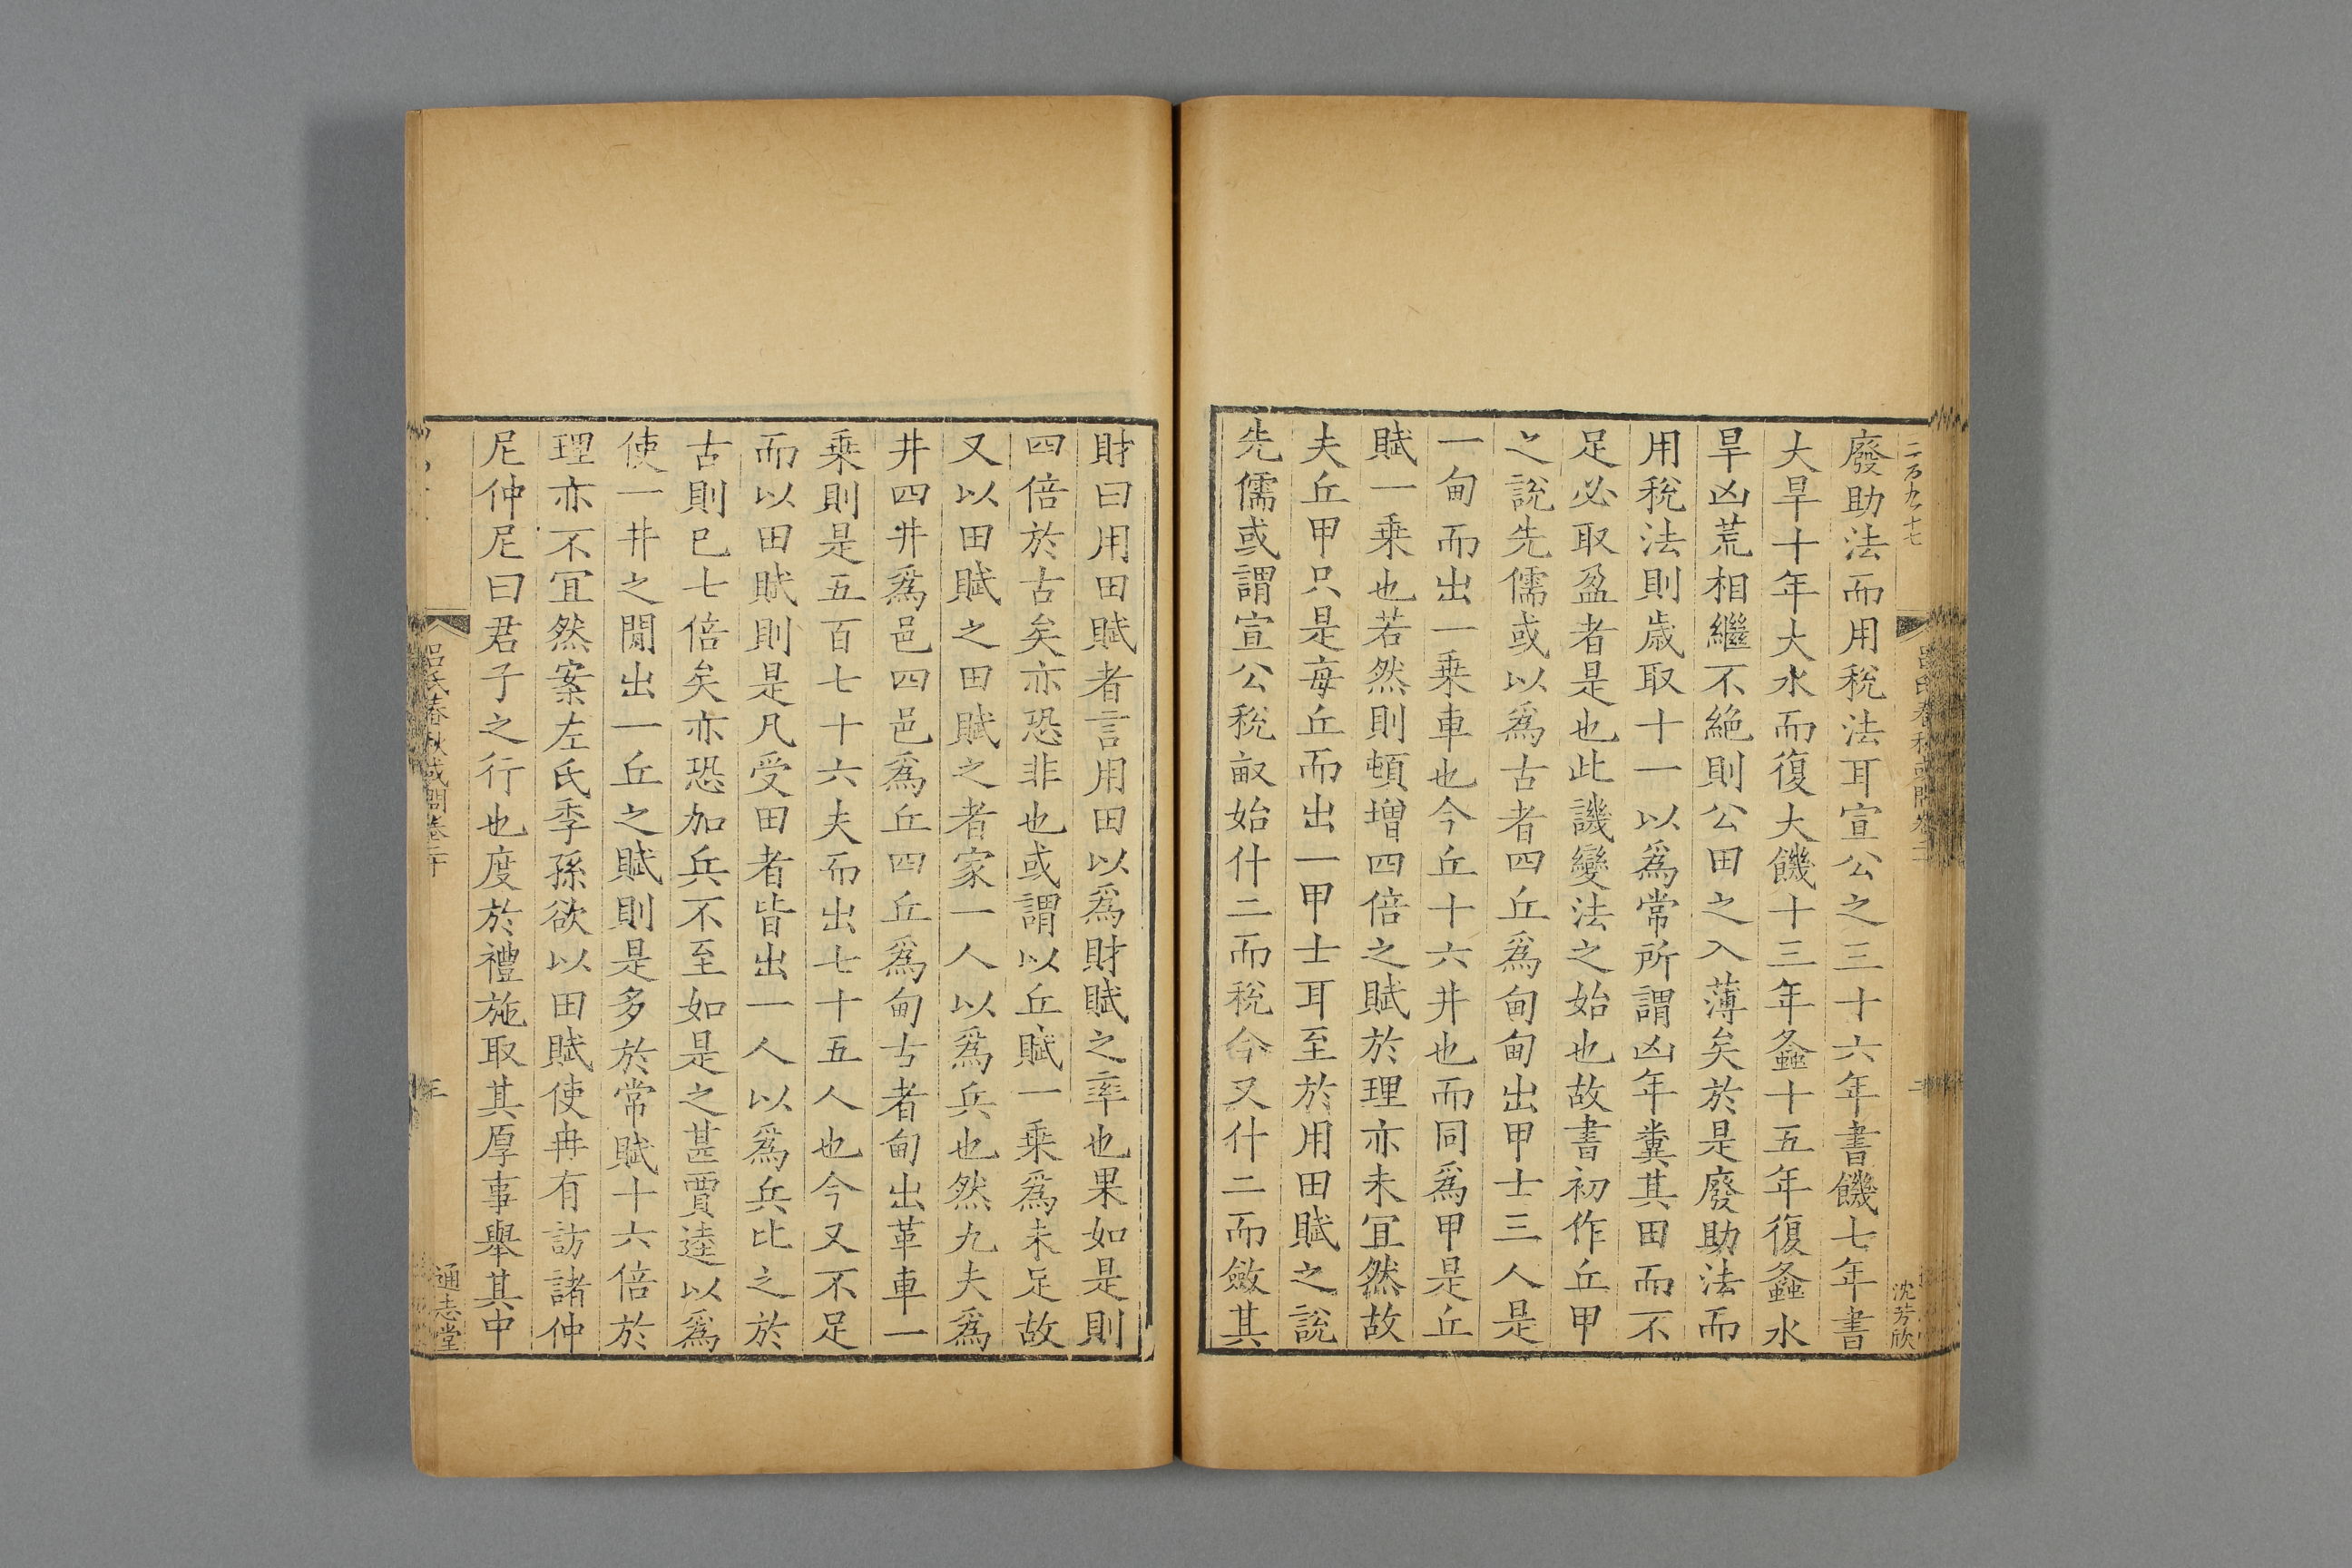 二百九十七
沈芳欣
廢助法而用稅法耳宣公之三十六年書饑七年書
大旱十年大水而復大饑十三年螽十五年復螽水
旱凶荒相繼不絶則公田之入薄矣於是廢助法而
用稅法則歲取十一以爲常所謂凶年糞其田而不
足必取盈者是也此譏變法之始也故書初作丘甲
之說先儒或以爲古者四丘爲甸甸出甲士三人是
一甸而出一乗車也今丘十六井也而同爲甲是丘
賦一乗也若然則頓增四倍之賦於理亦未宜然故
夫丘甲只是每丘而出一甲士耳至於用田賦之說
先儒或謂宣公稅畝始什二而稅今又什二而斂其
財曰用田賦者言用田以爲財賦之率也果如是則
四倍於古矣亦恐非也或謂以丘賦一乗爲未足故
又以田賦之田賦之者家一人以爲兵也然九夫爲
井四井爲邑四邑爲丘四丘爲甸古者甸出革車一
乗則是五百七十六夫而出七十五人也今又不足
而以田賦則是凡受田者皆出一人以爲兵比之於
古則已七倍矣亦恐加兵不至如是之甚賈逵以爲
使一井之閒出一丘之賦則是多於常賦十六倍於
理亦不宜然案左氏季孫欲以田賦使冉有訪諸仲
尼仲尼曰君子之行也度於禮施取其厚事舉其中
呂氏春秋或問卷二十
通志堂